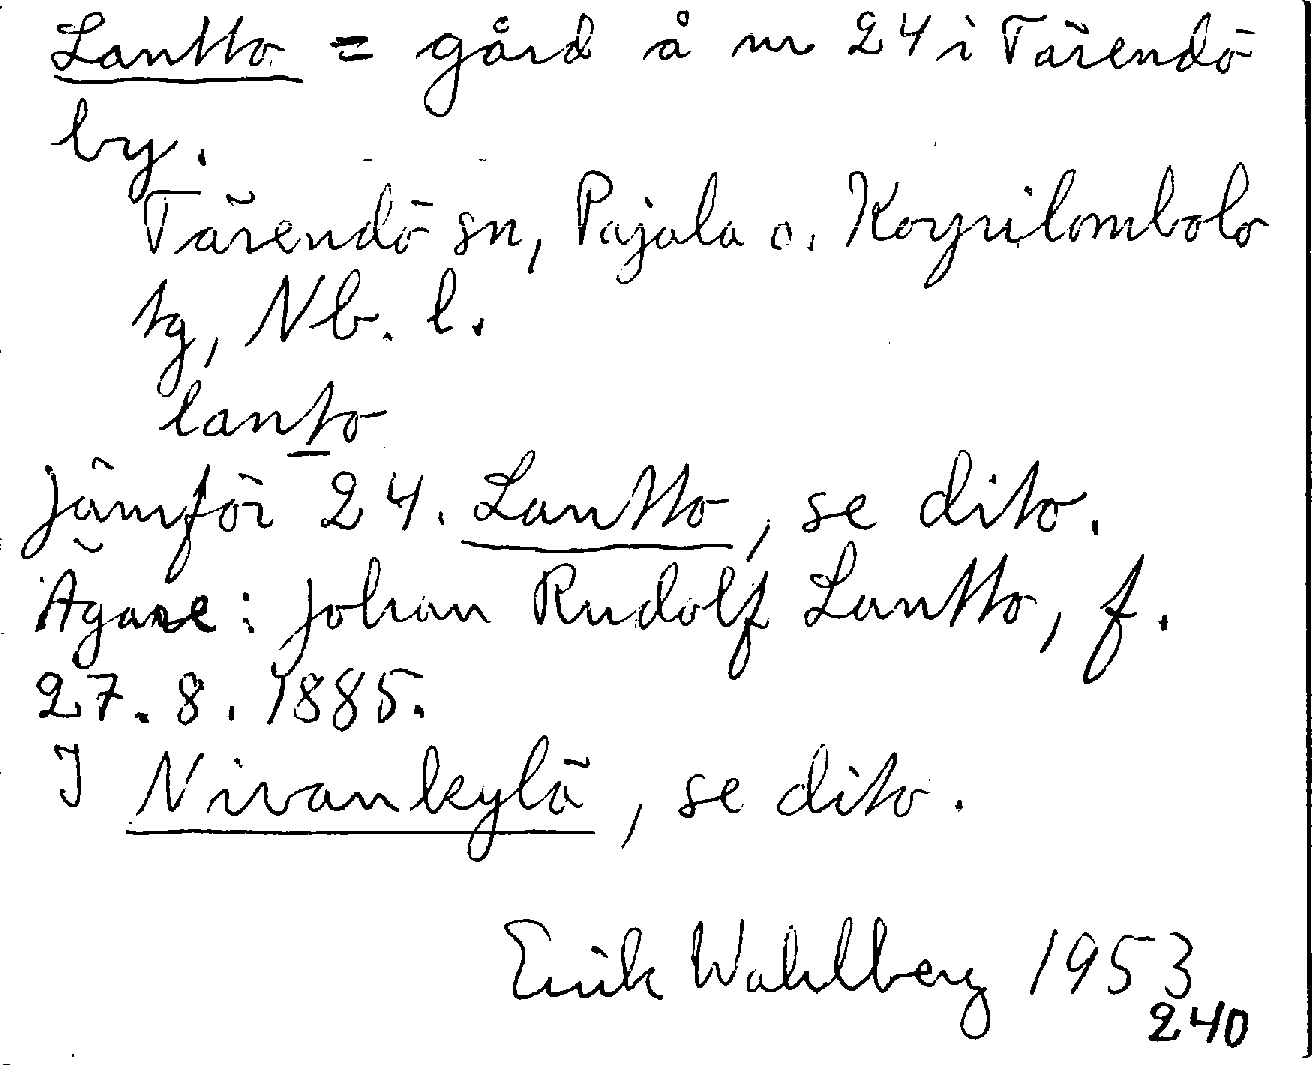 Lantto = gård å nr 24 i Tärendö
by.
Tärendö sn, Pajala o. Korpilombolo
tg, Nb. l.
lanto
Jämför 24. Lantto, se dito.
Ägare: Johan Rudolf Lantto, f.
27. 8. 1885.
I Nivankylä, se dito.
Erik Wahlberg 1953
240